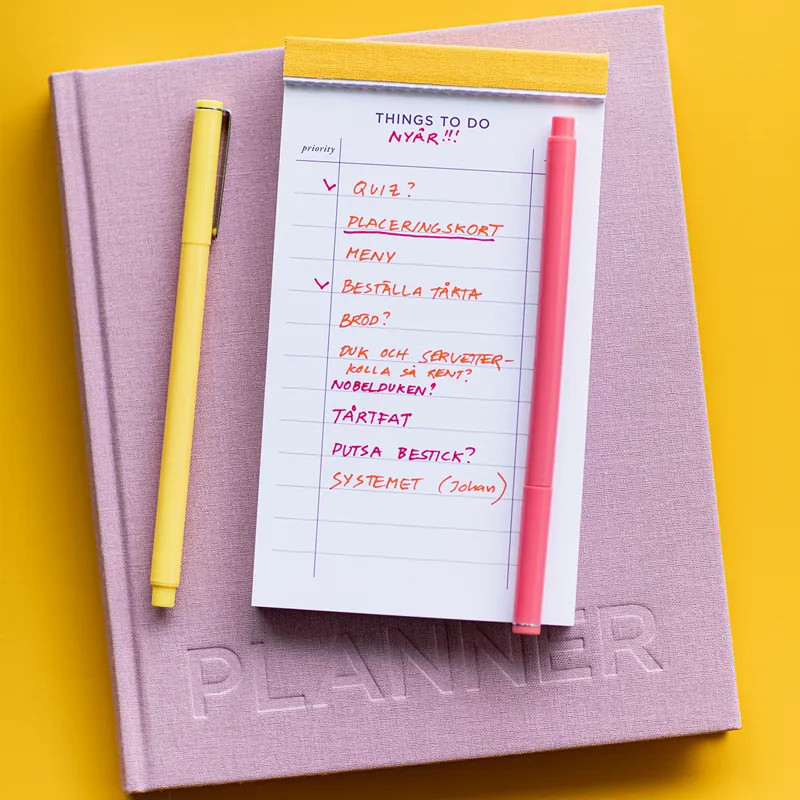 THINGS TO DO
NYÅR!!!
priority
QUIZ?
PLACERINGSKORT
MENY
BESTÄLLA TÅRTA
BRÖD?
DUK OCH SERVETTER-
KOLLA SÅ RENT?
NOBELDUKEN?
TÅRTFAT
PUTSA BESTICK?
SYSTEMET (Johan)
PLANNER